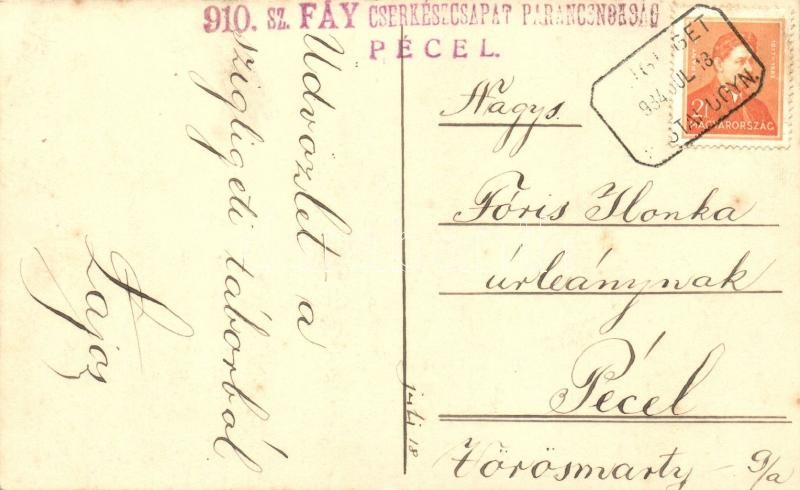 910. sz. FÁY CSERKÉSZCSAPAT PARANCSNOKSÁG
PÉCEL.
Üdvözlet a
szigligeti táborból
Lajos
juli 18
934 JUL 18
POSTAI ÜGYN.
MAGYARORSZÁG
Nagys.
Fóris Ilonka
úrleánynak
Pécel
Vörösmarty - 9/a